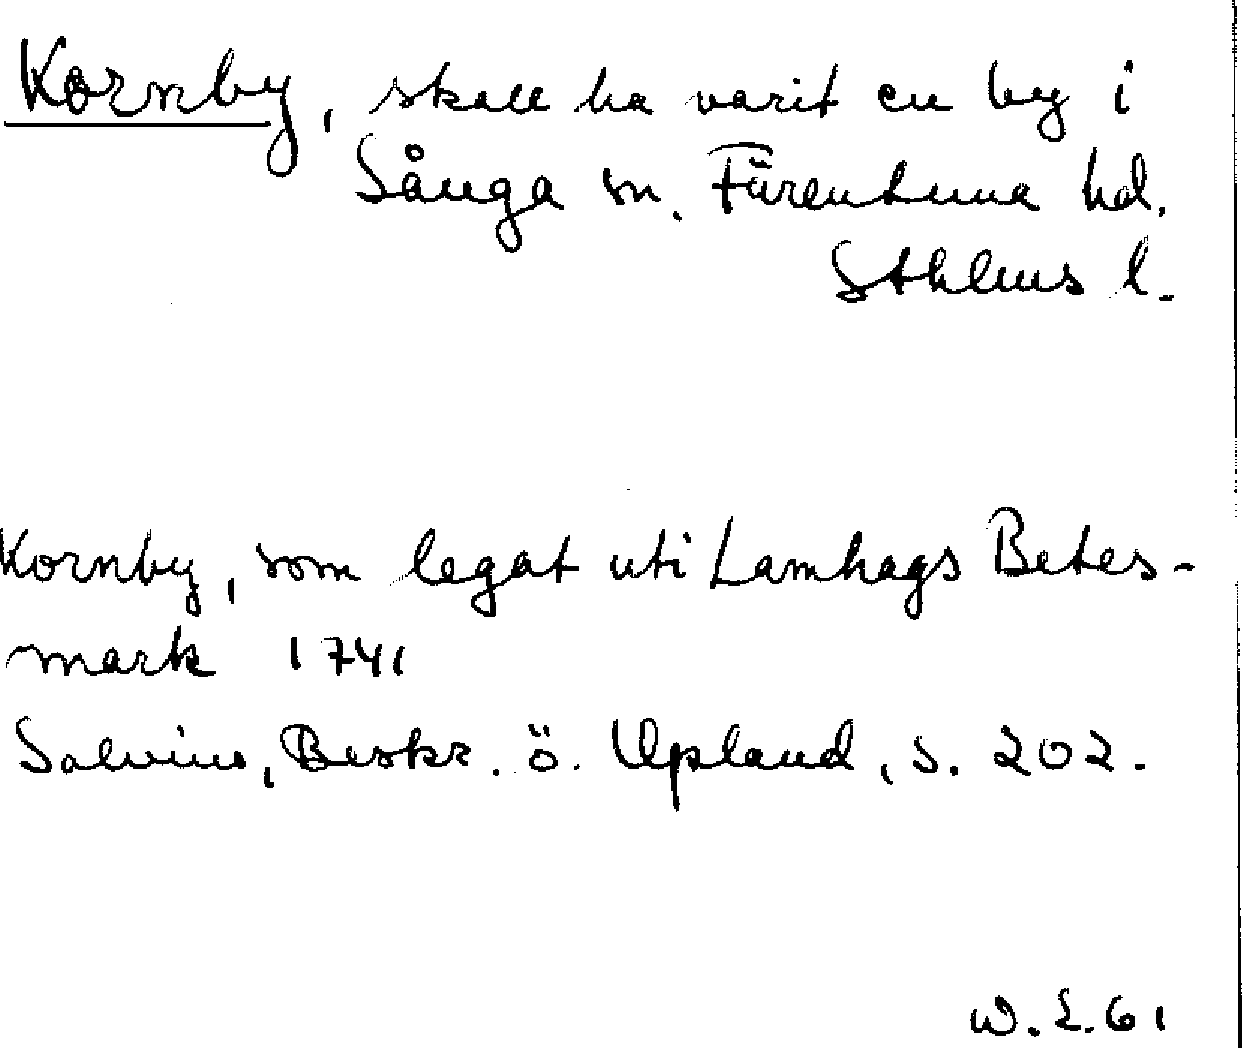 Kornby, skall ha varit en by i
Sånga sn. Färentuna hd.
Sthlms l.
Kornby, som legat uti Lamhags Betes-
mark 1741
Salvius, Beskr. ö. Upland, s. 202.
W. L. 61